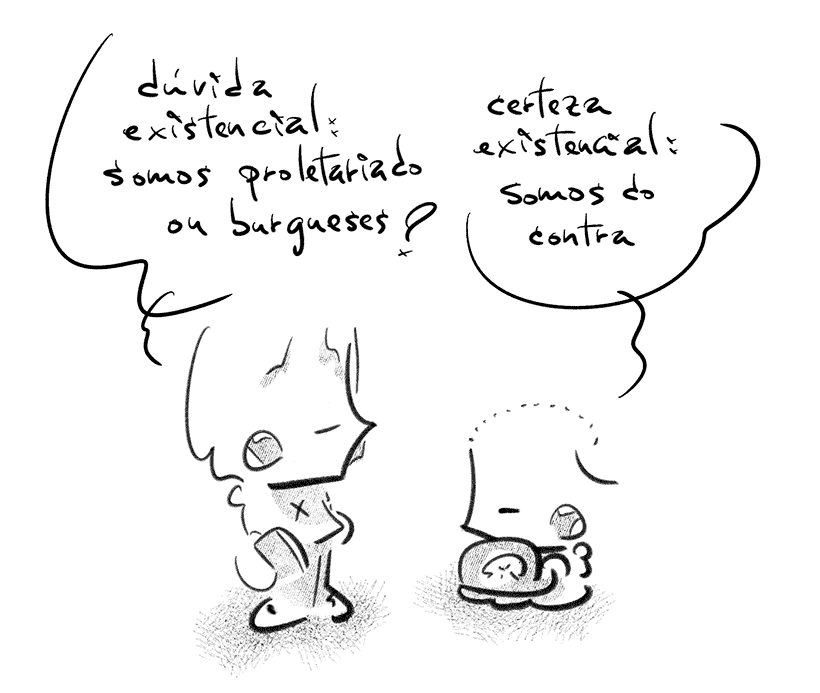 dúvida
existencial:
somos proletariado
ou burgueses?
certeza
existencial:
somos do
contra